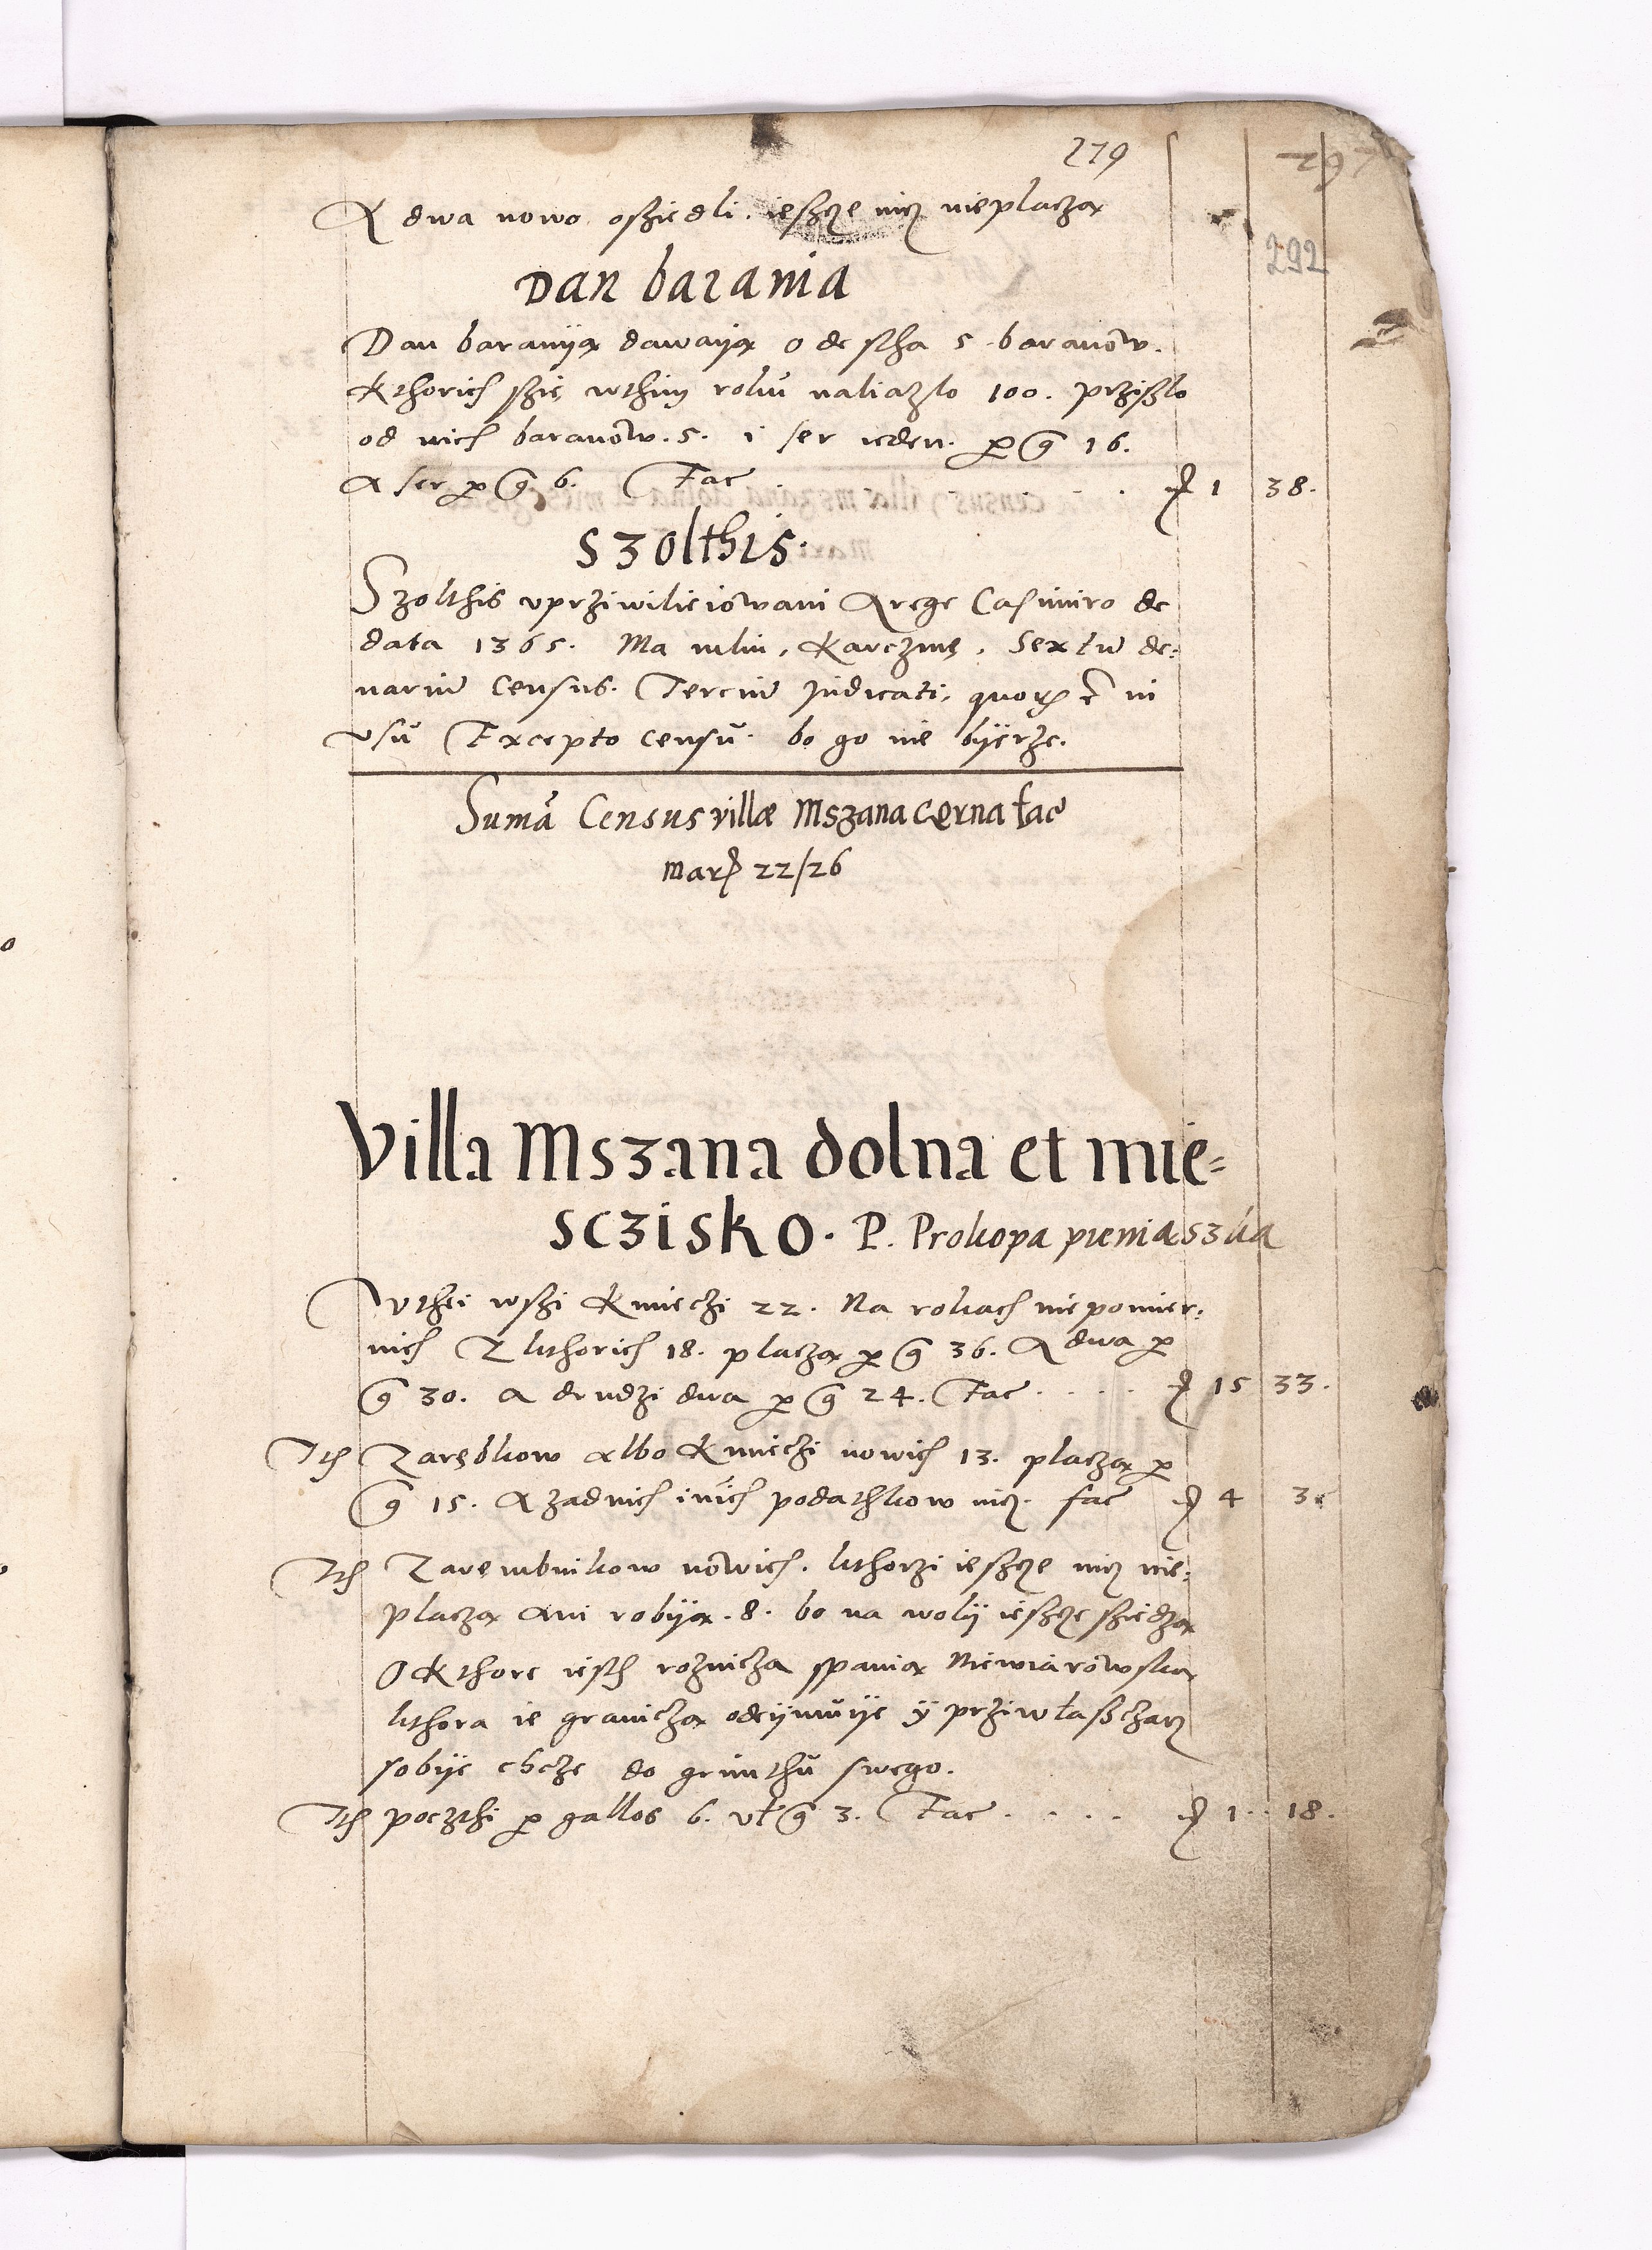 279
292
A dwa nowo osziedli. ieszcze nicz nieplaczą
Dan barania
Dan baraniją dawayą od stha 5 baranow.
Kthorich szię wthim roku naliazlo 100. Prziszlo
od nich baranow. 5. i ser ieden. per gr 16.
a ser per gr 6. Fac . . . . . . mrc 1 38.
Szolthis.
Szolthis uprziwilieiowani A rege Casimiro de
data 1365. Ma mlin, Karczmę, Sextū de:
nariū Census. Terciū Judicati, quorum est in
usū Excepto censū. bo go nie byerze.
Sumā Census villæ Mszana cęrna fac
marc 22/26
Villa Mszana dolna et mie=
sczisko. P. Prokopa pieniaszka
W thei wszi Kmieczi 22. Na rolach niepomier:
nich Z kthorich 18. placzą per gr 36. A dwa per
gr 30. a drudzi dwa per gr 24. Fac . . . . mrc 15 33.
Ith Zarębkow albo Kmieczi nowich 13. placzą per
gr 15. A zadnich inich podathkow nicz. fac mrc 4 3
Ith Zarembnikow nowich. kthorzi ieszcze nicz nie:
placzą ani robyą. 8. bo na wolij ieszcze sziedzą
O Kthore iesth roznicza spanią Niewiarowską
kthora ie graniczą odeymuye ÿ prziwłaszczacz
sobije chcze do grunthū swego.
Ith poczthi per gallos 6. vł gr 3. Fac . . . . mrc 1. 18.